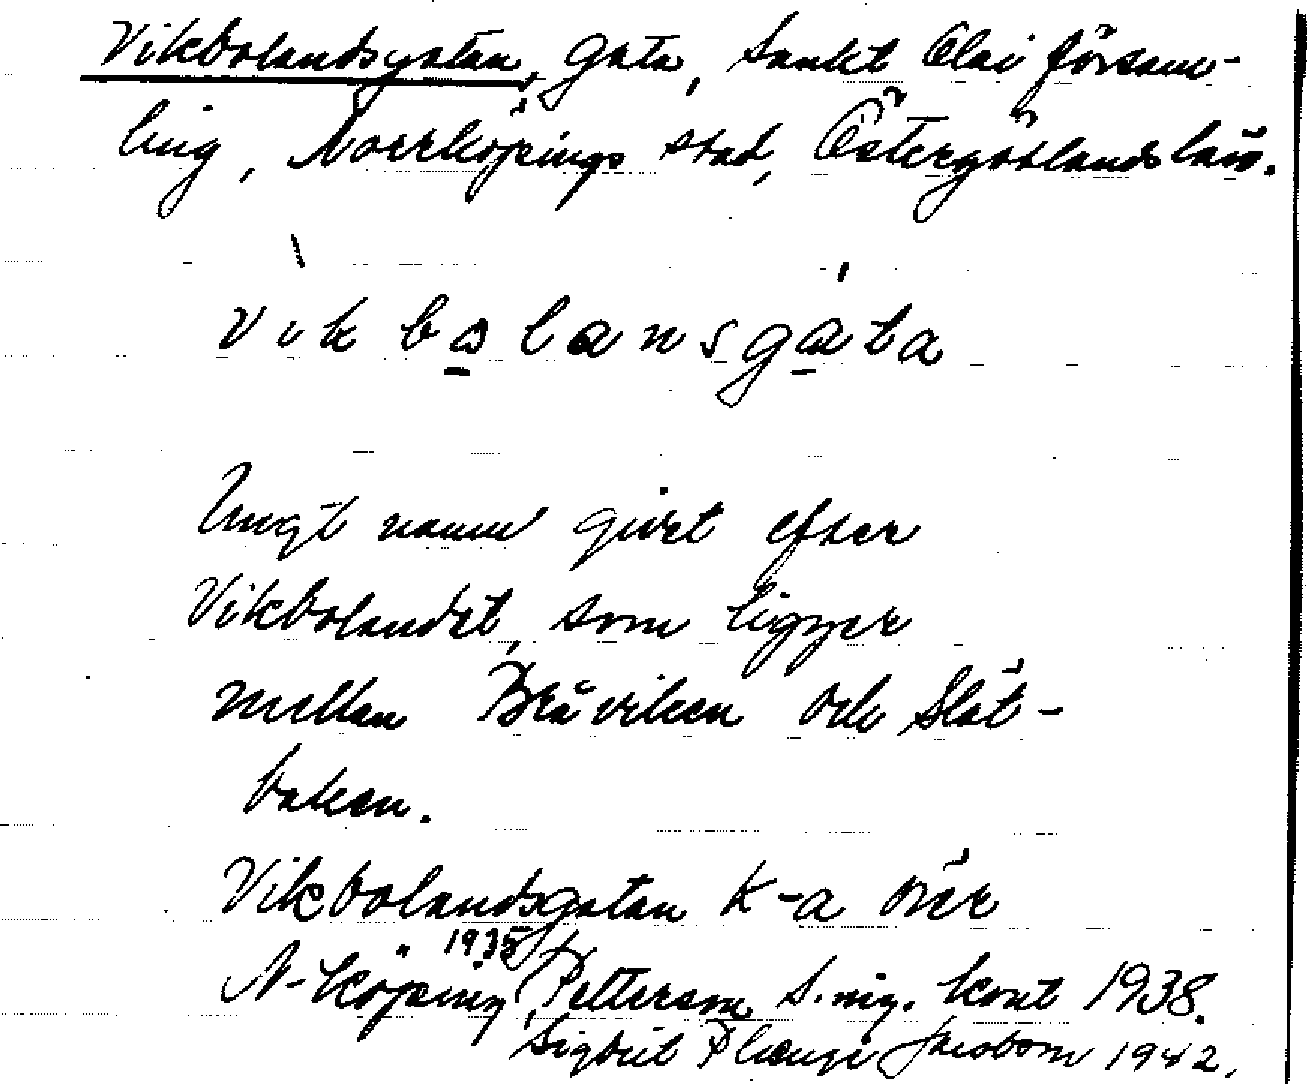 Vikbolandsgatan, gata, Sankt Olai försam-
ling, Norrköpings stad, Östergötlands län.
vikbolansgata
Ungt namn givet efter
Vikbolandet, som ligger
mellan Bråviken och Slät-
baken.
Vikbolandsgatan K-a över
N-köping 1935, Petterson, S. ing. kont 1938.
Sigurd Jacobson 1942.